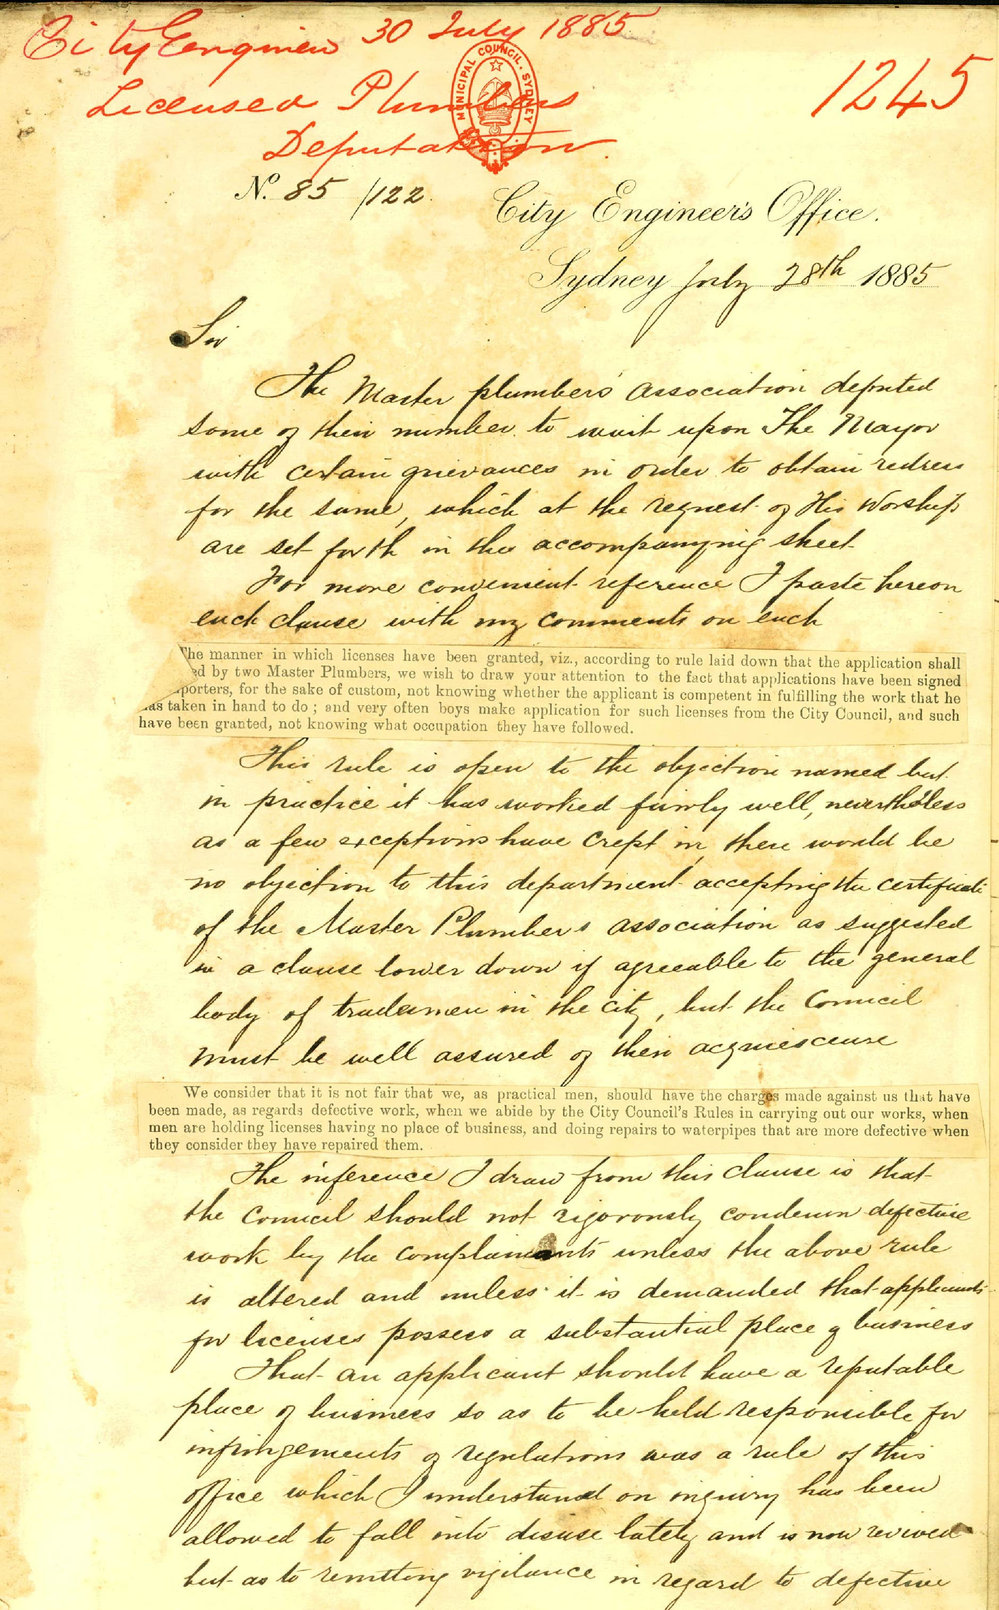 City Engineer 30 July 1885
1245
Licensed Plumbers
Deputation
MUNICIPAL COUNCIL. SYDNEY
No. 85/122.
City Engineer's Office.
Sydney July 28th 1885
Sir
The Master plumbers' association deputed
some of their number to wait upon The Mayor
with certain grievances in order to obtain redress
for the same, which at the request of His Worship
are set forth in the accompanying sheet
For more convenient reference I paste hereon
each clause with my comments on each
The manner in which licenses have been granted, viz., according to rule laid down that the application shall
ed by two Master Plumbers, we wish to draw your attention to the fact that applications have been signed
porters, for the sake of custom, not knowing whether the applicant is competent in fulfilling the work that he
has taken in hand to do; and very often boys make application for such licenses from the City Council, and such
have been granted, not knowing what occupation they have followed.
This rule is open to the objection named but
in practice it has worked fairly well, nevertheless
as a few exceptions have crept in, there would be
no objection to this department accepting the certificate
of the Master Plumbers association as suggested
in a clause lower down if agreeable to the general
body of tradesmen in the city, but the Council
must be well assured of their acquiescence
We consider that it is not fair that we, as practical men, should have the charges made against us that have
been made, as regards defective work, when we abide by the City Council's Rules in carrying out our works, when
men are holding licenses having no place of business, and doing repairs to waterpipes that are more defective when
they consider they have repaired them.
The inference I draw from this clause is that
the Council should not rigorously condemn defective
work by the complainants unless the above rule
is altered and unless it is demanded that applicants
for licenses possess a substantial place of business
That an applicant should have a reputable
place of business so as to be held responsible for
infringements of regulations was a rule of this
office which I understand on inquiry has been
allowed to fall into disuse lately and is now revived
but as to remitting vigilance in regard to defective